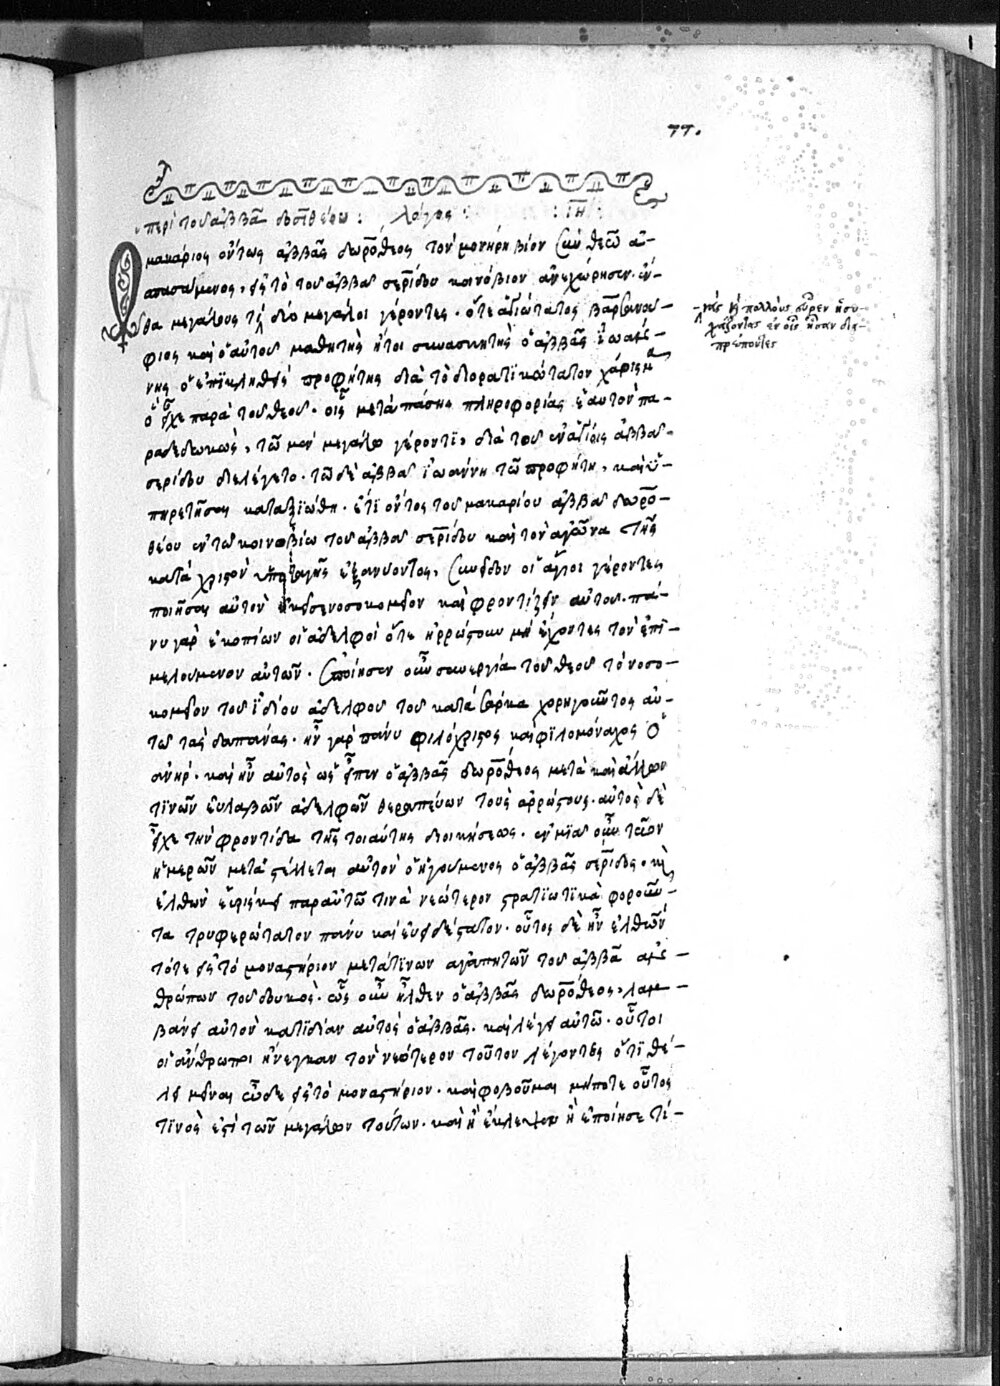 77.
περὶ τοῦ ἀββᾶ δοσιθέου : λόγος : : ΙΗ :
Ὁ μακάριος οὗτως ἀββᾶς δωρόθεος τὸν μονήρη βίον σὺν θεῶ ἀ-
σπασάμενος, εἰς τὸ τοῦ ἀββᾶ σερίδου κοινόβιον ἀνεχώρησεν. ἔν-
θα μεγάλους τε δύο μεγάλοι γέροντες. ὅτε ἁγιώτατος βαρσανού-
φιος καὶ ὁ αὐτοῦ μαθητὴς ἤτοι συνασκητὴς ὁ ἀββᾶς ἰωάν-
νης ὁ ἐπικληθεὶς προφήτης διὰ τὸ διορατικώτατον χάρισμα
ὃ εἶχε παρὰ τοῦ θεοῦ. οἷς μετὰ πάσης πληροφορίας ἑαυτὸν πα-
ραδεδωκὼς, τῶ μὲν μεγάλω γέροντι, διὰ τοῦ ἐν ἁγίοις ἀββᾶ
σερίδου διελέγετο. τῶ δὲ ἀββᾶ ἰωάννη τῶ προφήτη, καὶ ὑ-
πηρετῆσαι κατηξιώθη. ἔτι οὖν τοῦ μακαρίου ἀββᾶ δωρο-
θέου ἐν τῶ κοινοβίω τοῦ ἀββᾶ σερίδου καὶ τὸν ἀγῶνα τῆς
κατὰ χριστὸν ὑποταγῆς ἐξανύοντος, ἔδοξεν οἱ ἅγιοι γέροντες
ποιῆσαι αὐτὸν ἐκεῖσε νοσοκομεῖον καὶ φροντίζειν αὐτοῦ. πά-
νυ γὰρ ἐκοπίων οἱ ἀδελφοὶ ὅτε ἠρρώστουν μὴ ἔχοντες τὸν ἐπι-
μελούμενον αὐτῶν. ἐποίησεν οὖν συνεργία τοῦ θεοῦ τὸ νοσο-
κομεῖον τοῦ ἰδίου ἀδελφοῦ τοῦ κατὰ σάρκα χορηγοῦντος αὐ-
τῶ τὰς δαπάνας. ἦν γὰρ πάνυ φιλόχριστος καὶ φιλομόναχος ὁ
ἀνήρ. καὶ ἦν αὐτὸς ὡς εἶπεν ὁ ἀββᾶς δωρόθεος μετὰ καὶ ἄλλων
τινῶν εὐλαβῶν ἀδελφῶν θεραπεύων τοὺς ἀρρώστους. αὐτὸς δὲ
εἶχε τὴν φροντίδα τῆς τοιαύτης διοικήσεως. ἐν μιᾶ οὖν τῶν
ἡμερῶν μεταστέλλεται αὐτὸν ὁ ἡγούμενος ὁ ἀββᾶς σέριδος. καὶ
ἐλθὼν εὑρίσκει παρ' αὐτῶ τινὰ νεώτερον στρατιωτικὰ φοροῦν-
τα τρυφερώτατον πάνυ καὶ εὐειδέστατον. οὗτος δὲ ἦν ἐλθὼν
τότε εἰς τὸ μοναστήριον μετὰ τινων ἀγαπητῶν τοῦ ἀββᾶ ἀν-
θρώπων τοῦ δουκός. ὡς οὖν ἦλθεν ὁ ἀββᾶς δωρόθεος, λαμ-
βάνει αὐτὸν κατιδίαν αὐτὸς ὁ ἀββᾶς. καὶ λέγει αὐτῶ. οὗτοι
οἱ ἄνθρωποι ἤνεγκαν τὸν νεώτερον τοῦτον λέγοντες ὅτι θέ-
λει μεῖναι ὧδε εἰς τὸ μοναστήριον. καὶ φοβοῦμαι μήποτε οὗτος
τινὸς ἐστὶ τῶν μεγάλων τούτων. καὶ ἢ ἔκλεψεν ἢ ἐποίησέ τί-
νάς καὶ πολλοὺς εὗρεν ἡσυ-
χάζοντας ἐν οἷς ἦσαν δια-
πρέποντες